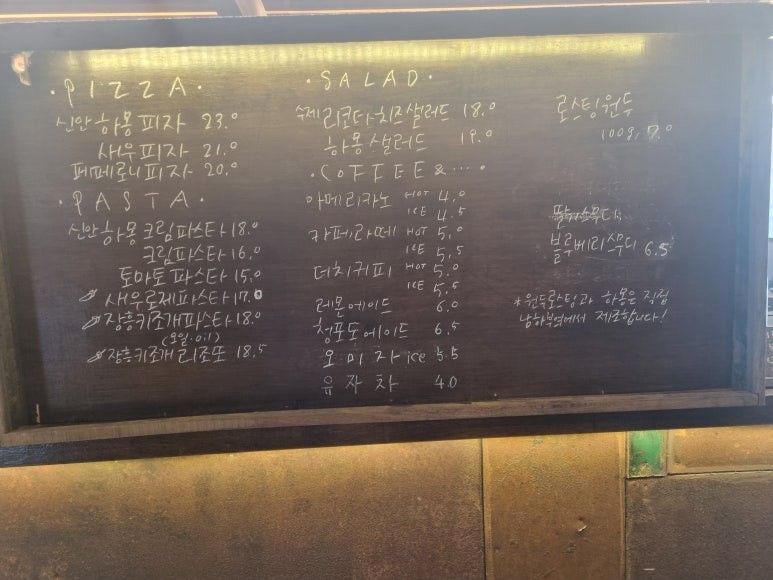 · PIZZA ·
신안 하몽 피자 23.0
새우 피자 21.0
페페로니 피자 20.0
· PASTA ·
신안 하몽 크림파스타 18.0
크림파스타 16.0
토마토 파스타 15.0
새우로제파스타 17.0
장흥키조개파스타 18.0
(오일·oil)
장흥키조개 리조또 18.5
· SALAD ·
수제 리코타치즈샐러드 18.0
하몽샐러드 19.0
· COFFEE & ···· ·
아메리카노 HOT 4.0
ICE 4.5
카페라떼 HOT 5.0
ICE 5.5
더치커피 HOT 5.0
ICE 5.5
레몬에이드 6.0
청포도에이드 6.5
오미자 ice 5.5
유자차 4.0
로스팅원두
100g, 7.0
블루베리스무디 6.5
* 원두로스팅과 하몽은 직접
남하부엌에서 제조합니다!